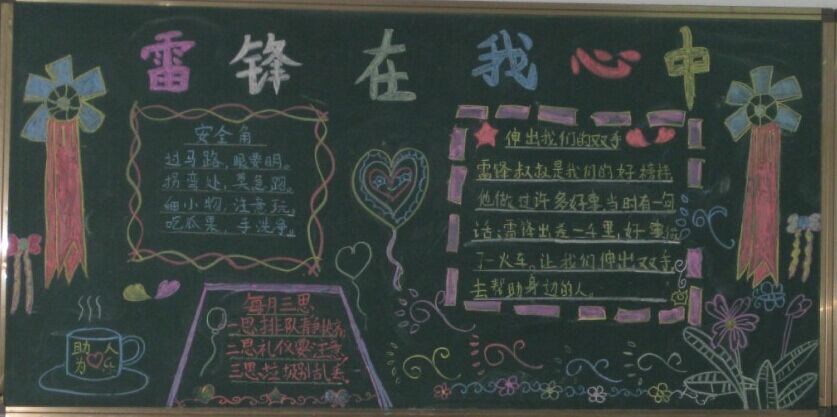 雷锋在我心中
安全角
过马路，眼要明。
拐弯处，莫急跑。
细小物，注意玩。
吃瓜果，手洗净。
伸出我们的双手
雷锋叔叔是我们的好榜样
他做过许多好事当时有一句
话：雷锋出差一千里，好事做
了一火车。让我们伸出双手
去帮助身边的人。
每月三思
一思排队静
二思礼仪要注意
三思垃圾别乱丢
助人
为乐